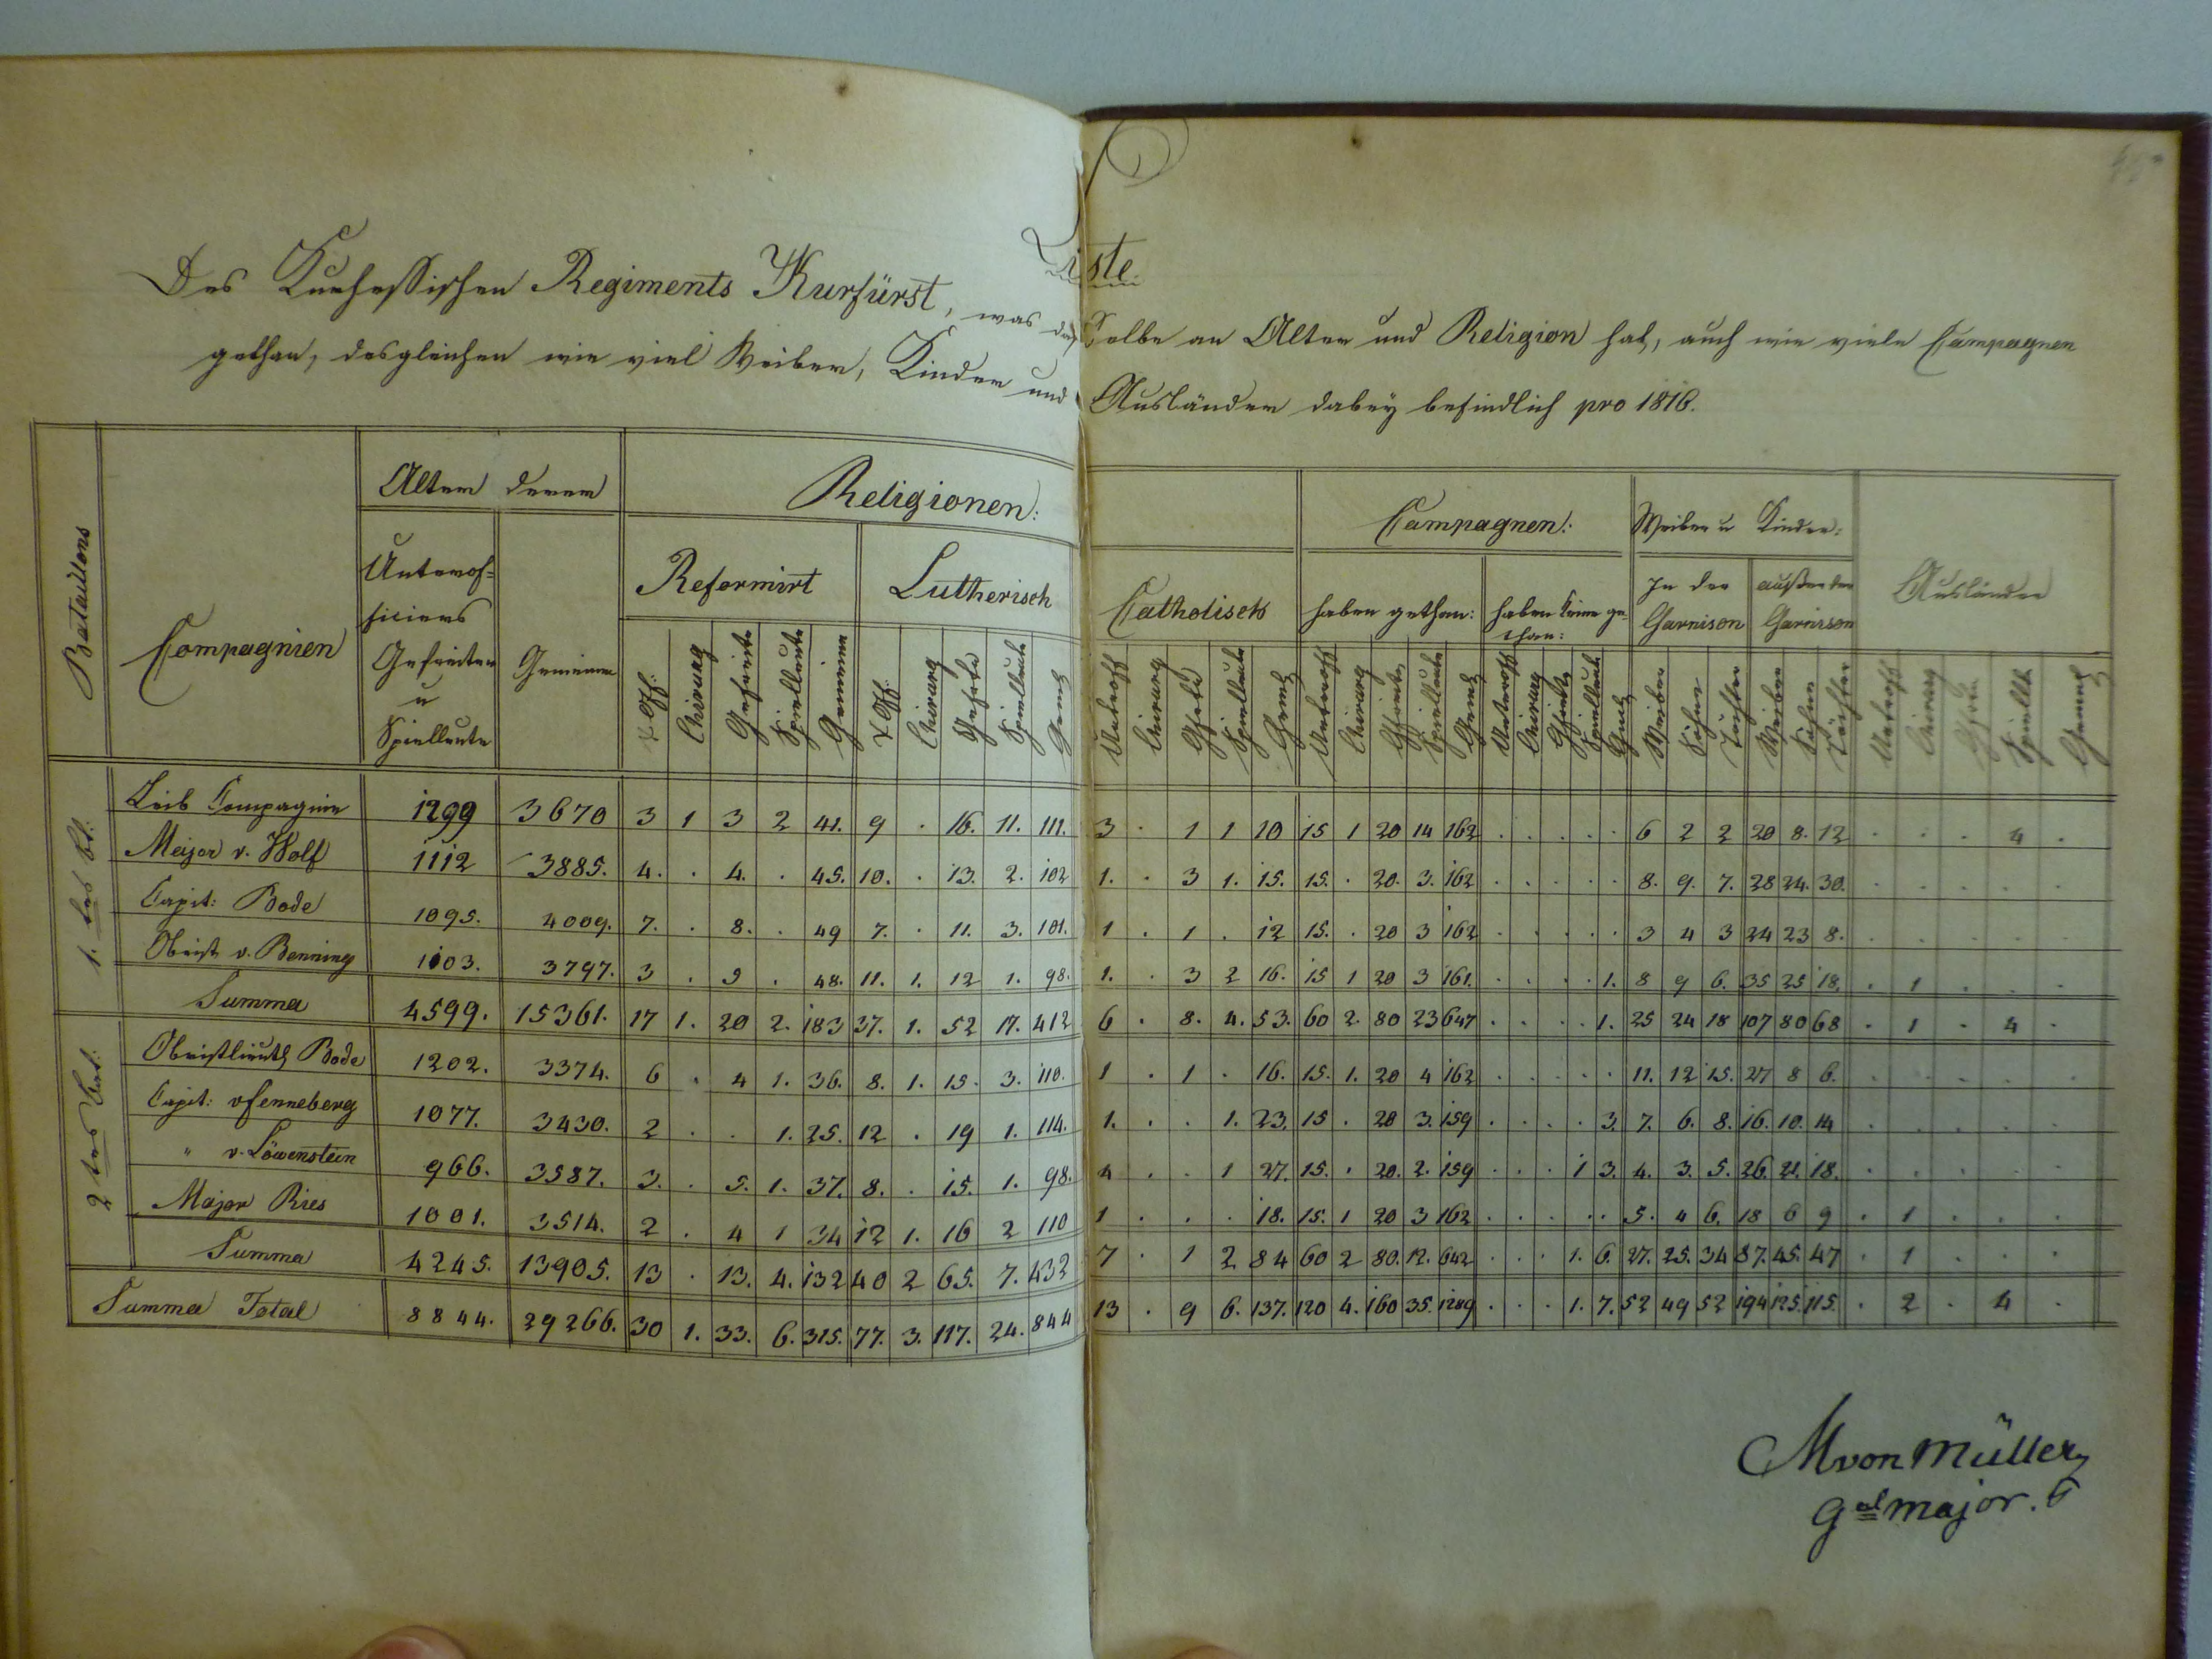 Liste
Des Kurhessischen Regiments Kurfürst, was dasselbe an Alter und Religion hat, auch wie viele Campagnen
gethan, desgleichen wie viel Weiber, Kinder und Ausländer dabey befindlich pro 1816.
Bataillons | Compagnien | Alter derer | Religionen: | Campagnen: | Weiber u Kinder: | Ausländer
Unterof=ficiers Gefreiten u Spielleute | Gemeinen | Reformirt | Lutherisch | Catholisch | haben gethan: | haben keine ge=than: | In der Garnison | außer der Garnison
U Off: | Chirurg | Gefreite | Spielleute | Gemeinen | U Off: | Chirurg | Gefrte | Spielleute | Gemein | Unteroff | Chirurg | Gfrte | Spielleute | Gemein | Unteroff | Chirurg | Gfreite | Spielleute | Gemein | Unteroff | Chirurg | Gfreite | Spielleute | Gem | Weiber | Söhne | Töchter | Weiber | Söhne | Töchter | Unteroff | Chirurg | Gfrte | Spiellte | Gemein
1. tes Bt:
Leib Compagnie | 1299 | 3670 | 3 | 1 | 3 | 2 | 41. | 9 | . | 16. | 11. | 111. | 3 | . | 1 | 1 | 10 | 15 | 1 | 20 | 14 | 162 | . | . | . | . | . | 6 | 2 | 2 | 20 | 8. | 12 | . | . | . | 4 | .
Major v. Wolf | 1112 | 3885. | 4. | . | 4. | . | 45. | 10. | . | 13. | 2. | 102 | 1. | . | 3 | 1. | 15. | 15. | . | 20. | 3. | 162 | . | . | . | . | . | 8. | 9. | 7. | 28 | 24. | 30. | . | . | . | . | .
Capit: Bode | 1095. | 4009. | 7. | . | 8. | . | 49 | 7. | . | 11. | 3. | 101. | 1 | . | 1 | . | 12 | 15. | . | 20 | 3 | 162 | . | . | . | . | . | 3 | 4 | 3 | 24 | 23 | 8. | . | . | . | . | .
Obrist v. Benning | 1103. | 3797. | 3 | . | 5 | . | 48. | 11. | 1. | 12 | 1. | 98. | 1. | . | 3 | 2 | 16. | 15 | 1 | 20 | 3 | 161. | . | . | . | . | 1. | 8 | 9 | 6. | 35 | 25 | 18. | . | 1 | . | . | .
Summa | 4599. | 15361. | 17 | 1. | 20 | 2. | 183 | 37. | 1. | 52 | 17. | 412 | 6 | . | 8. | 4. | 53. | 60 | 2. | 80 | 23 | 647 | . | . | . | . | 1. | 25 | 24 | 18 | 107 | 80 | 68 | . | 1 | . | 4 | .
2 tes Bat:
Obristlieut Bode | 1202. | 3374. | 6 | . | 4 | 1. | 36. | 8. | 1. | 15. | 3. | 110. | 1 | . | 1 | . | 16. | 15. | 1. | 20 | 4 | 162 | . | . | . | . | . | 11. | 12 | 15. | 27 | 8 | 6. | . | . | . | . | .
Capit: v Senneberg | 1077. | 3430. | 2 | . | . | 1. | 25. | 12 | . | 19 | 1. | 114. | 1. | . | . | 1. | 23. | 15 | . | 20 | 3. | 159 | . | . | . | . | 3. | 7. | 6. | 8. | 16. | 10. | 14 | . | . | . | . | .
" v. Löwenstein | 966. | 3587. | 3. | . | 5. | 1. | 37. | 8. | . | 15. | 1. | 98. | 4 | . | . | 1 | 27. | 15. | . | 20. | 2. | 159 | . | . | . | 1 | 3. | 4. | 3. | 5. | 26. | 21. | 18. | . | . | . | . | .
Major Ries | 1001. | 3514. | 2 | . | 4 | 1 | 34 | 12 | 1. | 16 | 2 | 110 | 1 | . | . | . | 18. | 15. | 1 | 20 | 3 | 162 | . | . | . | . | . | 5. | 4 | 6. | 18 | 6 | 9 | . | 1 | . | . | .
Summa | 4245. | 13905. | 13 | . | 13. | 4. | 132 | 40 | 2 | 65. | 7. | 432 | 7 | . | 1 | 2 | 84 | 60 | 2 | 80. | 12. | 642 | . | . | . | 1. | 6. | 27. | 25. | 34 | 87. | 45. | 47 | . | 1 | . | . | .
Summa Total | 8844. | 29266. | 30 | 1. | 33. | 6. | 315. | 77. | 3. | 117. | 24. | 844 | 13 | . | 9 | 6. | 137. | 120 | 4. | 160 | 35. | 1289 | . | . | . | 1. | 7. | 52 | 49 | 52 | 194 | 125. | 115. | . | 2 | . | 4 | .
M von Müller
Gal major.